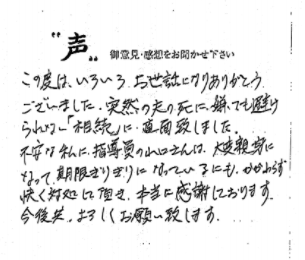 "声" 御意見・感想をお聞かせ下さい
この度は、いろいろお世話になりありがとう
ございました。突然の夫の死に、嫌でも避け
られない「相続」に直面致しました。
不安な私に、指導員の山口さんは、大変親切に
なって、期限ぎりぎりになっているにも、かかわらず
快く対処して頂き、本当に感謝しております。
今後共、よろしくお願い致します。